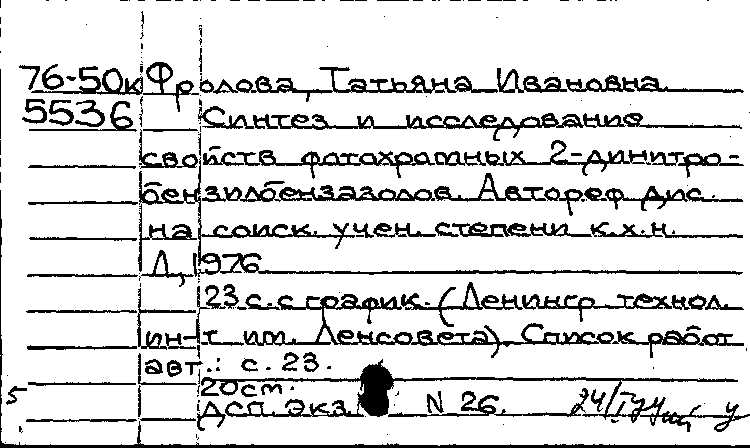 76-50к Фролова, Татьяна Ивановна
5536 Синтез и исследование
свойств фотохромных 2-динитро-
бензилбензазолов. Автореф. дис.
на соиск. учен. степени к.х.н.
Л., 1976
23 с. с график. (Ленингр. технол.
ин-т им. Ленсовета). Список работ
авт.: с. 23.
20см.
5 ДСП. Экз. N 26.